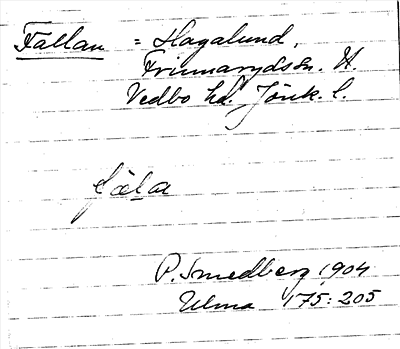 Fallan = Hagalund,
Frinnarydssn. N.
Vedbo hd. Jönk. l.
P. Smedberg 1904
Ulma 175:205